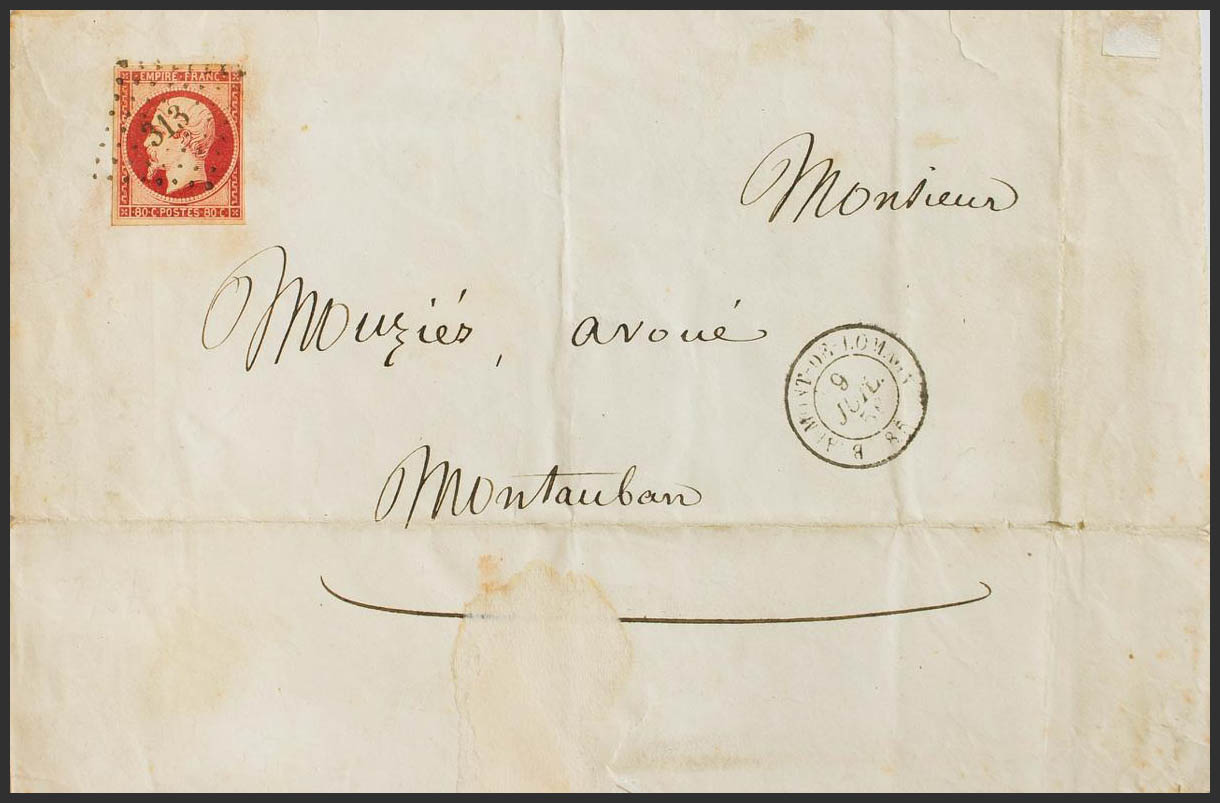 EMPIRE FRANC
313
80·C POSTES 80·C
Monsieur
Mouziés, avoué
BEAUMONT-DE-LOMAGNE
9
JUIL.
85
Montauban